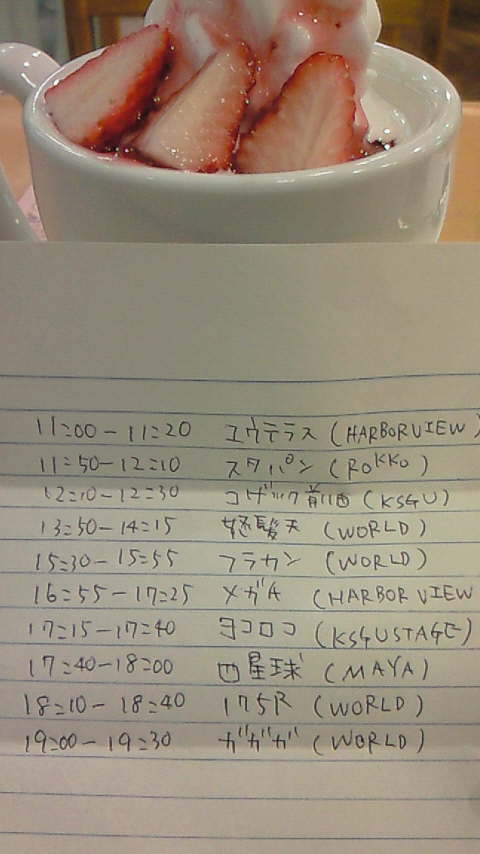 11:00-11:20 ユウテラス (HARBORVIEW)
11:50-12:10 スタパン (ROKKO)
12:10-12:30 コザック前田 (KSGU)
13:50-14:15 怒髪天 (WORLD)
15:30-15:55 フラカン (WORLD)
16:55-17:25 メガA (HARBOR VIEW
17:15-17:40 ヨコロコ (KSGUSTAGE)
17:40-18:00 四星球 (MAYA)
18:10-18:40 175R (WORLD)
19:00-19:30 ガガガ (WORLD)